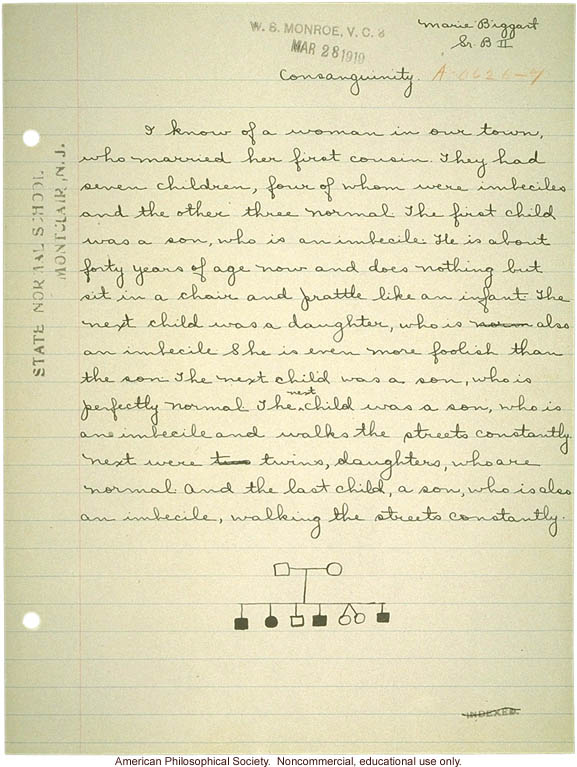 W. S. MONROE, V. C. S
MAR 28 1910
Marie Biggart
Sr. B II
Consanguinity.
STATE NORMAL SCHOOL
MONTCLAIR, N. J.
I know of a woman in our town,
who married her first cousin. They had
seven children, four of whom were imbeciles
and the other three normal. The first child
was a son, who is an imbecile. He is about
forty years of age now and does nothing but
sit in a chair and prattle like an infant. The
next child was a daughter, who is also
an imbecile. She is even more foolish than
the son. The next child was a son, who is
perfectly normal. The next child was a son, who is
an imbecile and walks the streets constantly.
Next were twins, daughters, who are
normal. And the last child, a son, who is also
an imbecile, walking the streets constantly.
INDEXED.
American Philosophical Society. Noncommercial, educational use only.